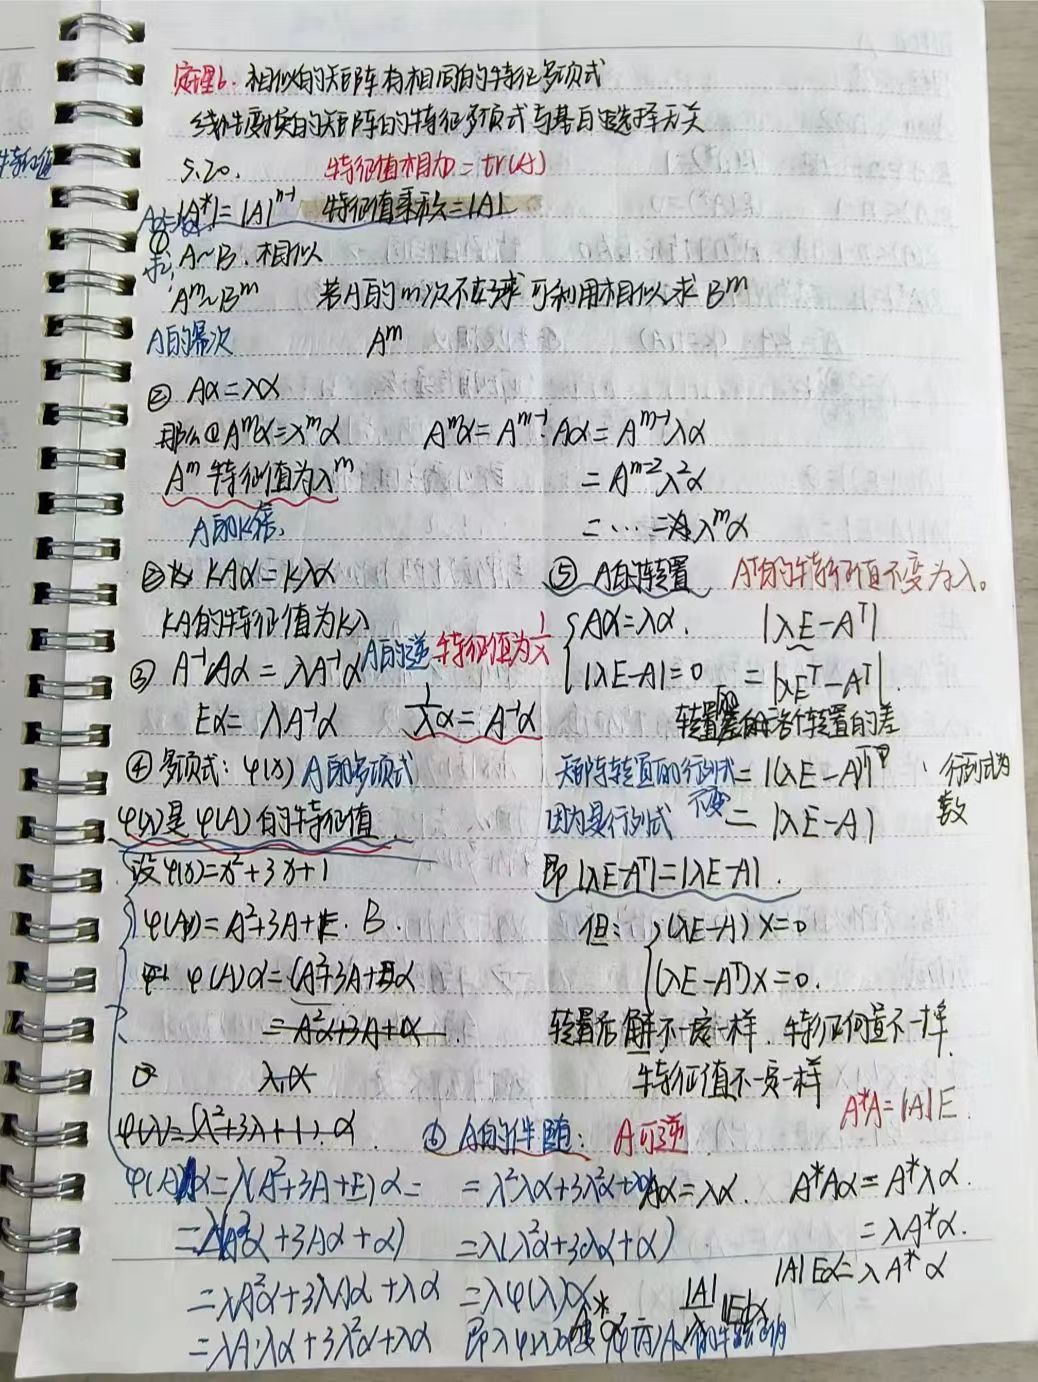 定理6. 相似的矩阵有相同的特征多项式
线性变换的矩阵的特征多项式与基的选择无关
5.20. 特征值相加=tr(A)
|A*|=|A|^{n-1} 特征值乘积=|A|
A~B. 相似
A^m~B^m 若A的m次不好求可利用相似求B^m
A的幂次 A^m
② Aα=λα
那么 A^mα=λ^mα A^mα=A^{m-1}·Aα=A^{m-1}λα
A^m 特征值为λ^m =A^{m-2}λ²α
A的K倍, =…=λ^mα
KAα=Kλα
KA的特征值为Kλ
③ A^{-1}Aα=λA^{-1}α A的逆 特征值为1/λ
Eα=λA^{-1}α 1/λα=A^{-1}α
④ 多项式: φ(x) A的多项式
φ(λ)是φ(A)的特征值
设φ(x)=x²+3x+1
φ(A)=A²+3A+E. B.
φ(A)α=(A²+3A+E)α
=A²α+3A+α
λα
φ(λ)=(λ²+3λ+1)α
φ(A)Aα=λ(A²+3A+E)α=
=λ(A²α+3Aα+α)
=λA²α+3λAα+λα
=λA·λα+3λ²α+λα
=λ²λα+3λ²α+λα
=λ(λ²α+3λα+α)
=λφ(λ)α
⑤ A的转置 A^T的特征值不变为λ。
Aα=λα. |λE-A^T|
|λE-A|=0 =|λE^T-A^T|.
矩阵转置的行列式=|(λE-A)^T| , 行列式为数
因为是行列式 不变 =|λE-A|
即|λE-A^T|=|λE-A|.
但: (λE-A)X=0
(λE-A^T)X=0.
转置后解不一定一样. 特征向量不一样.
特征值不一定一样
⑥ A的伴随: A可逆 A*A=|A|E.
Aα=λα. A*Aα=A*λα.
=λA*α.
|A|Eα=λA*α